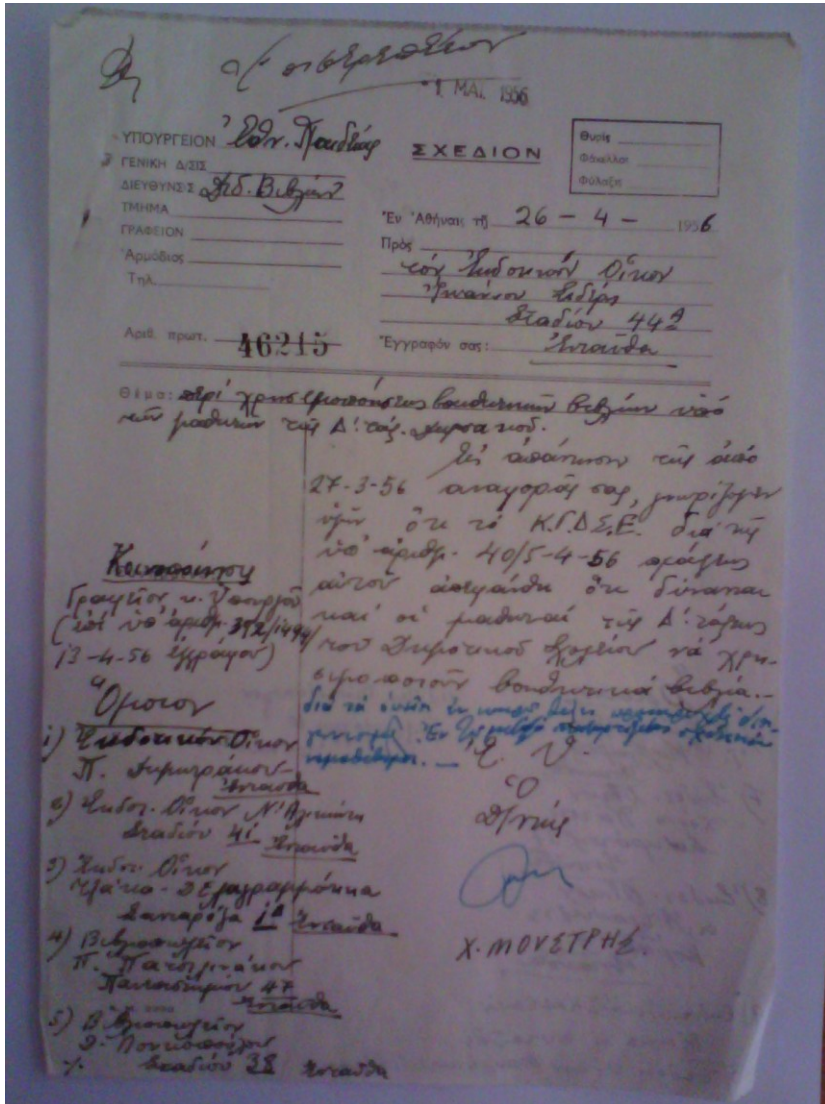 1. ΜΑΪ. 1956
ΥΠΟΥΡΓΕΙΟΝ Ἐθν. Παιδείας
ΓΕΝΙΚΗ Δ/ΣΙΣ
ΔΙΕΥΘΥΝΣΙΣ Διδ. Βιβλίων
ΤΜΗΜΑ
ΓΡΑΦΕΙΟΝ
Ἁρμόδιος
Τηλ.
Ἀριθ. πρωτ. 46215
ΣΧΕΔΙΟΝ
Θυρὶς
Φάκελλος
Φύλαξη
Ἐν Ἀθήναις τῇ 26 - 4 - 1956
Πρὸς
τόν Ἐκδοτικόν Οἶκον
Ἰωάννου Σιδέρη
Σταδίου 44Α
Ἔγγραφόν σας: Ἐνταῦθα
Θέμα: περί χρησιμοποιήσεως βοηθητικῶν βιβλίων ὑπό
τῶν μαθητῶν τῆς Δ! τάξ.
Εἰς ἀπάντησιν τῆς ἀπό
27-3-56 ἀναφορᾶς σας, γνωρίζομεν
ὑμῖν ὅτι τό Κ.Γ.Δ.Σ.Ε. διά τῆς
ὑπ' ἀριθμ. 40/5-4-56 πράξεως
αὐτοῦ ἀπεφάνθη ὅτι δύνανται
καί οἱ μαθηταί τῆς Δ! τάξεως
τοῦ Δημοτικοῦ Σχολείου νά χρη-
σιμοποιοῦν βοηθητικά βιβλία.
διά τά ὁποῖα
Ἐν
Ε. Υ.
Ὁ
Δ/ντής
Χ. ΜΟΥΣΤΡΗΣ.
Κοινοποίησις
Γραφεῖον κ. Ὑπουργοῦ
(ἐπί ὑπ' ἀριθμ. 392/1494/
13-4-56 ἐγγράφου)
Ὅμοιον
1) Ἐκδοτικόν Οἶκον
Π. Δημητράκου
Ἐνταῦθα
2) Ἐκδοτ. Οἶκον Ν. Ἀλικιώτη
Σταδίου 41 Ἐνταῦθα
3) Ἐκδοτ. Οἶκον
Τζάκα - Δελαγραμμάτικα
Σανταρόζα 1Α Ἐνταῦθα
4) Βιβλιοπωλεῖον
Π. Πατσιλινάκου
Πανεπιστημίου 47
Ἐνταῦθα
5) Βιβλιοπωλεῖον
Σταδίου 38 Ἐνταῦθα